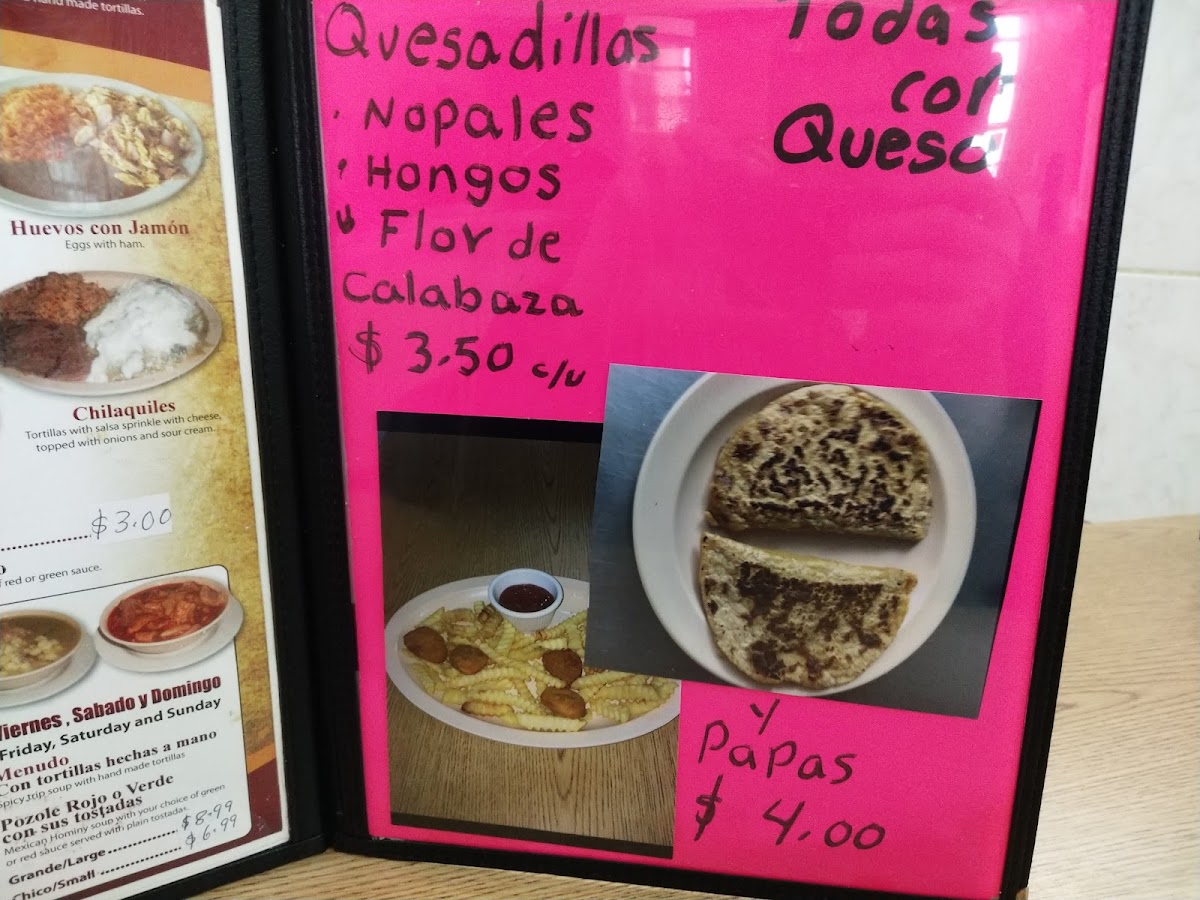 hand made tortillas.
Huevos con Jamón
Eggs with ham.
Chilaquiles
Tortillas with salsa sprinkle with cheese,
topped with onions and sour cream.
$3.00
red or green sauce.
Viernes , Sabado y Domingo
Friday, Saturday and Sunday
Menudo
Con tortillas hechas a mano
Spicy trip soup with hand made tortillas
Pozole Rojo o Verde
con sus tostadas
Mexican Hominy soup with your choice of green
or red sauce served with plain tostadas.
Grande/Large $8.99
Chico/Small $6.99
Quesadillas
Nopales
Hongos
Flor de
Calabaza
$ 3.50 c/u
Todas
con
Queso
y
Papas
$ 4.00